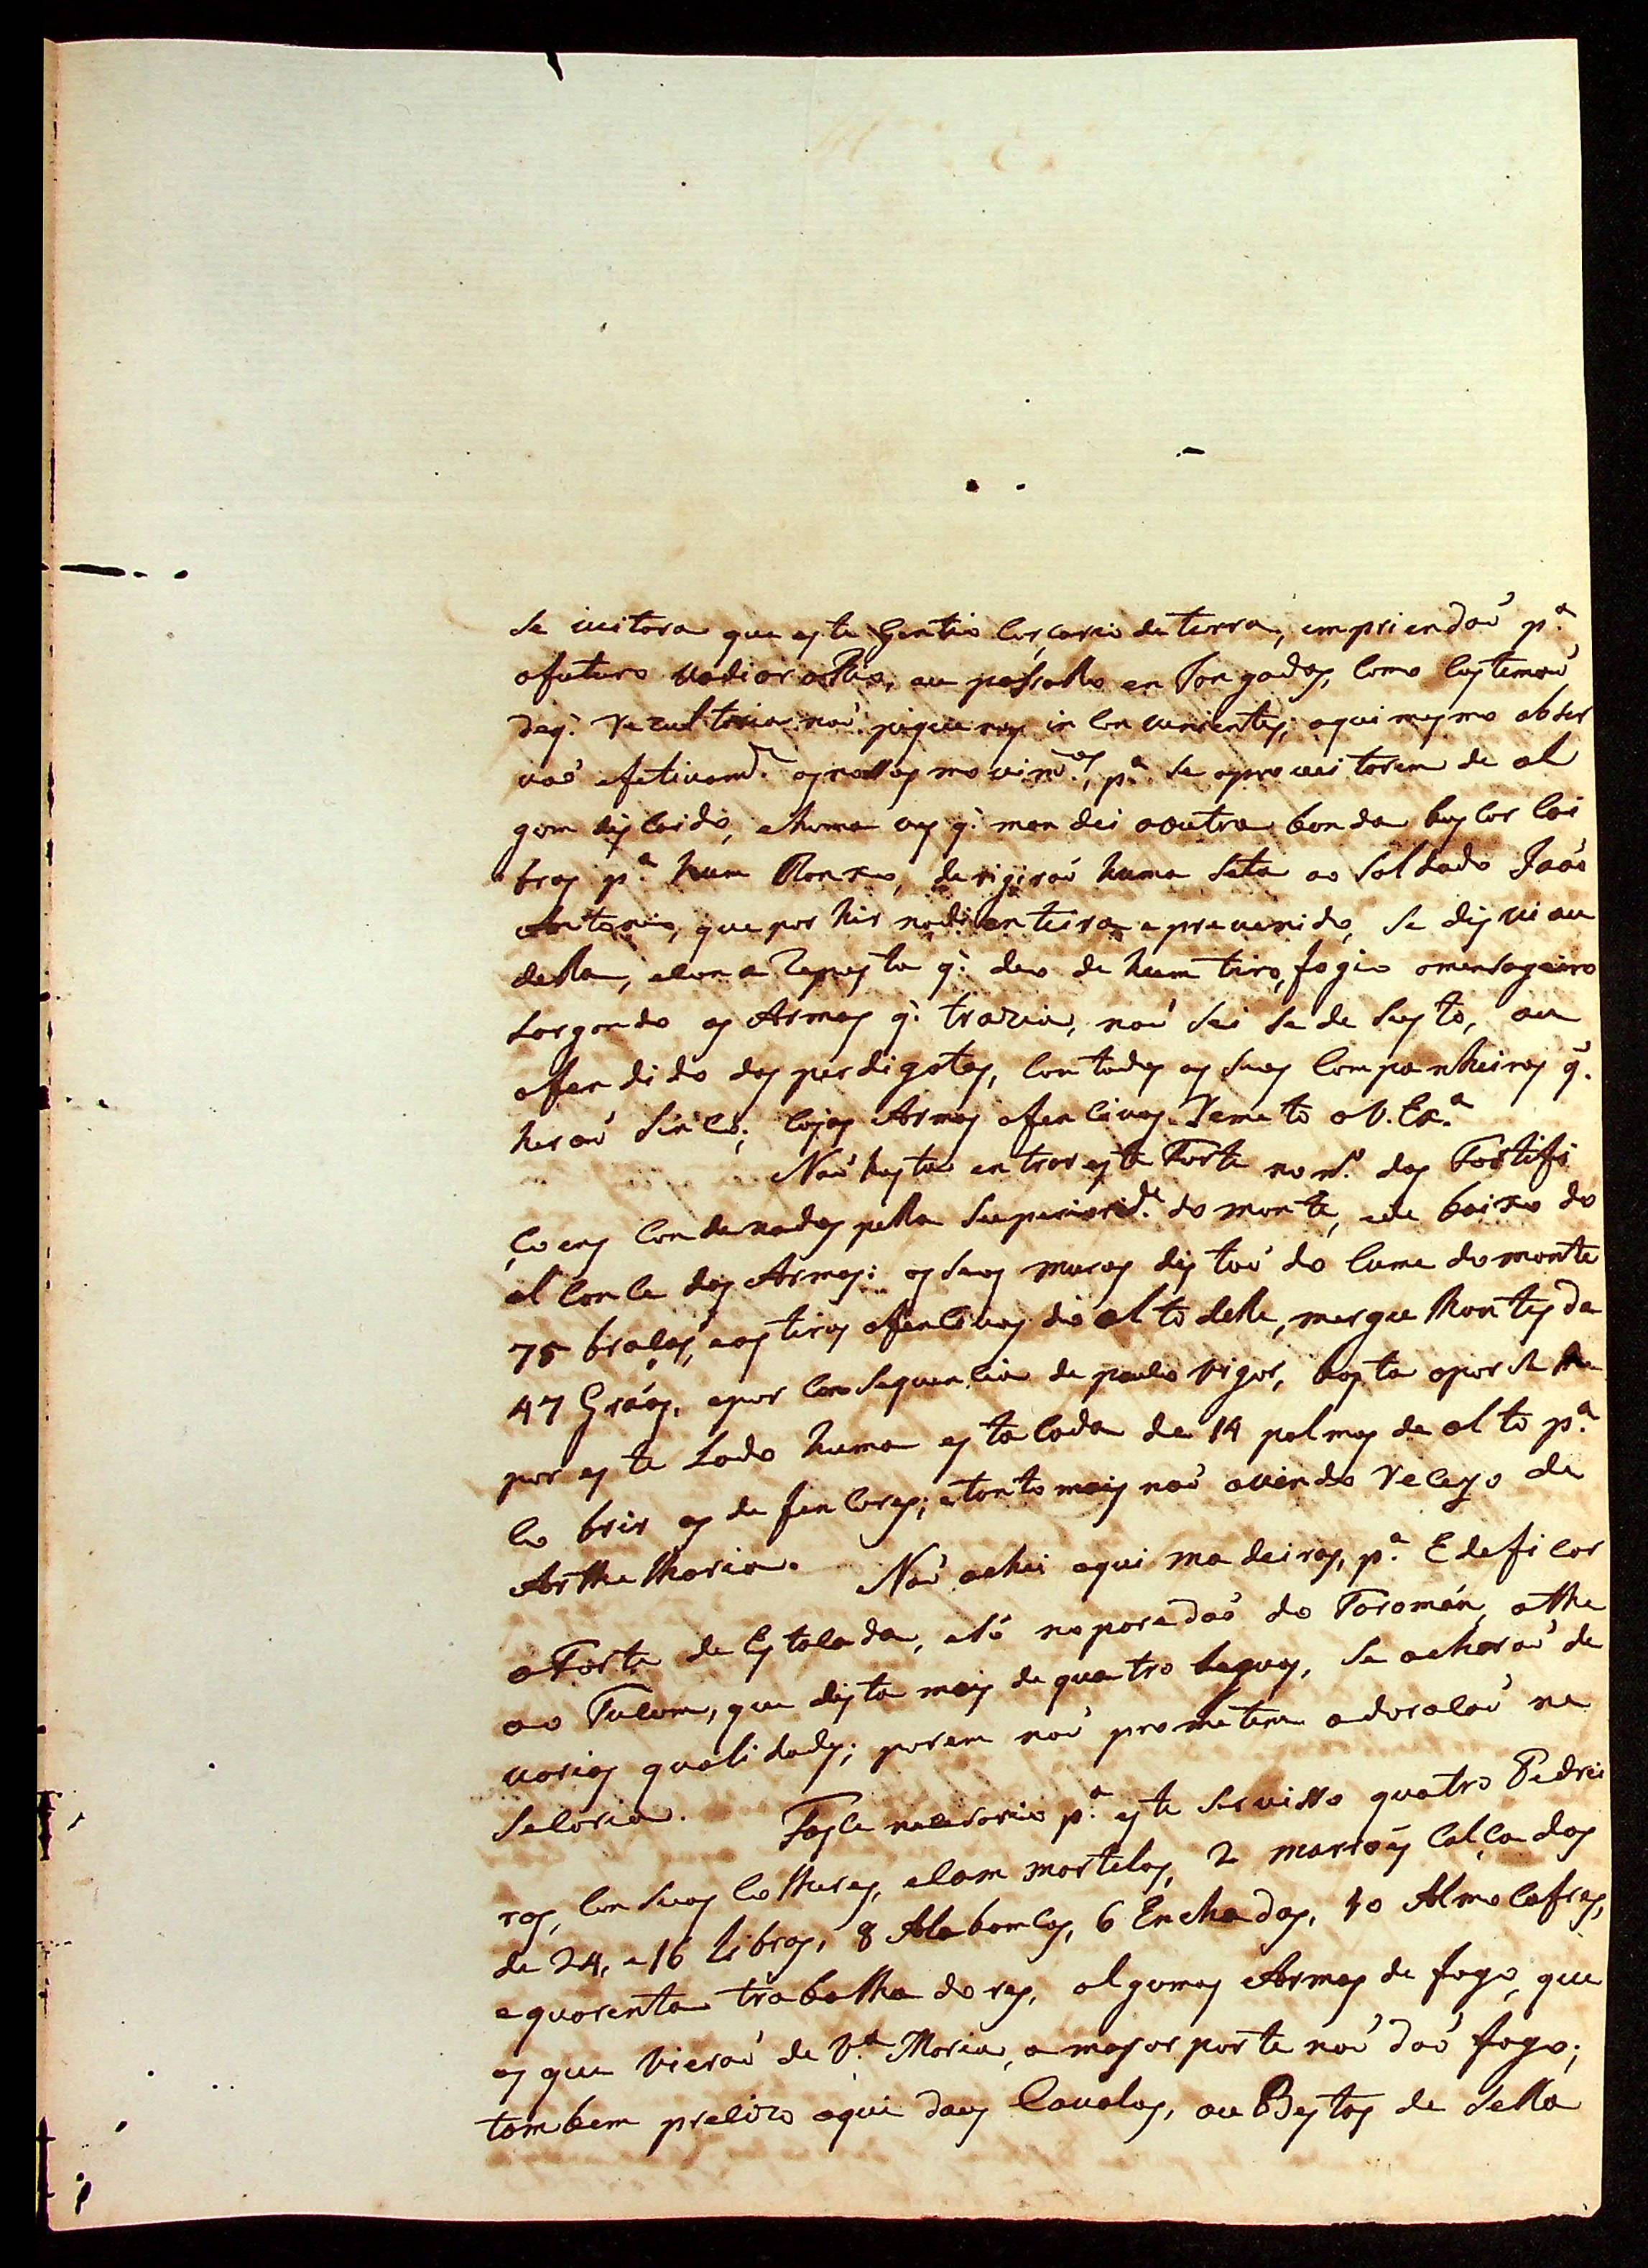 Se ivitara que este Gentio Corsario de terra, empriendaõ p.ª
ofuturo vadiar oRio, ou passallo en Jangadas, como custemaõ
deq̃. rezultaria naõ piquenos in convenientes; aqui mesmo obser
vaõ efetivam.te os nossos movim.tos, p.ª se aproveitarem de al
gum discuido, ehuma ves q̃. mandei aoutra banda buscar Cai
bros p.ª hum Ranxo, derigiraõ huma seta ao Soldado Joaõ
Antonio, que por hir nodianteira eprevenido, se disviou
della, econ a reposta q̃. deo de hum tiro, fogio omensageiro
Largando as Armas q̃. trazia, naõ sei se de susto, ou
ofendido dos perdigotes, con todos os seus Companheiros q̃.
heraõ sinco; cojas Armas ofencivas remeto aV. Ex.ª
Naõ basta entrar este Forte no n.º das Fortifi
çoens condenadas pella superiorid.e do monte, ede baixo do
alcance das Armas: os seus muros distaõ do cume do monte
75 braças, eos tiros ofencivos do alto delle, mergulhontes da
47 Gráos, epor consequencia de pouco vigor, basta oporse lhe
por este Lado huma estacada de 14 palmos de alto p.ª
cobrir os defencores; etanto mais naõ avendo receyo de
Arthelharia. Naõ achei aqui madeiras, p.ª Edeficar
oForte de Estacada, esó noparedaõ do Taromán, athe
ao Tucum, que dista mais de quatro Leguas, se acharaõ de
varias qualidades; porem naõ prometem aduracaõ ne
secaria. Fasce necesario p.ª este servisso quatro Pedrei
ros, con suas colheres, ecom martelos, 2 marroẽs calçados
de 24, e 16 Libras, 8 Alabancas, 6 Enchadas, 10 Almocafres,
equarenta trabalhadores, algumas Armas de fogo, que
as que vieraõ de V.ª Maria, a mayor parte naõ daõ fogo;
tambem precizo aqui dous Cavalos, ou Bestas de sella